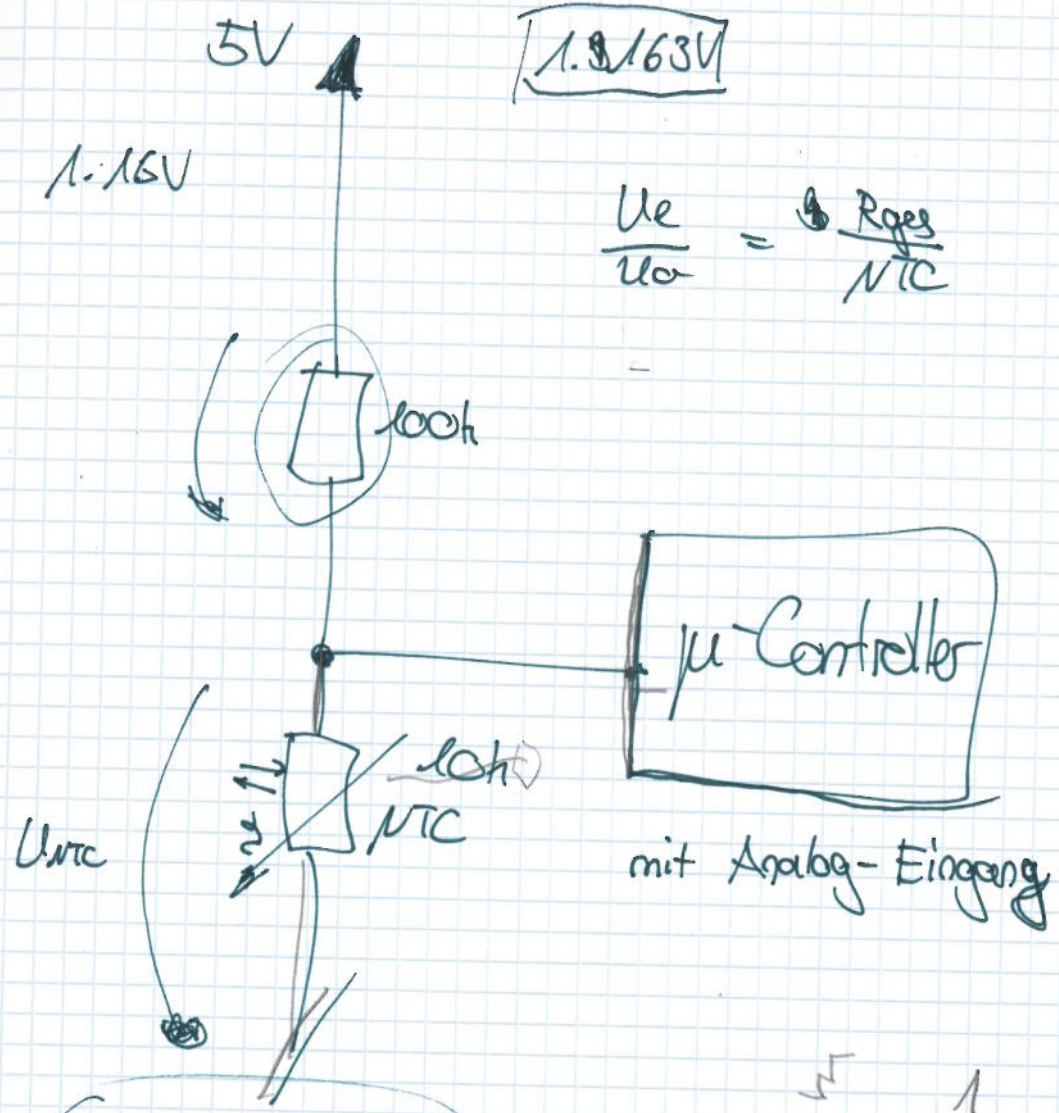 5V
1.163V
1.16V
Ue / Ua = Rges / NTC
100k
µ-Controller
10k
NTC
UNTC
mit Analog-Eingang
1